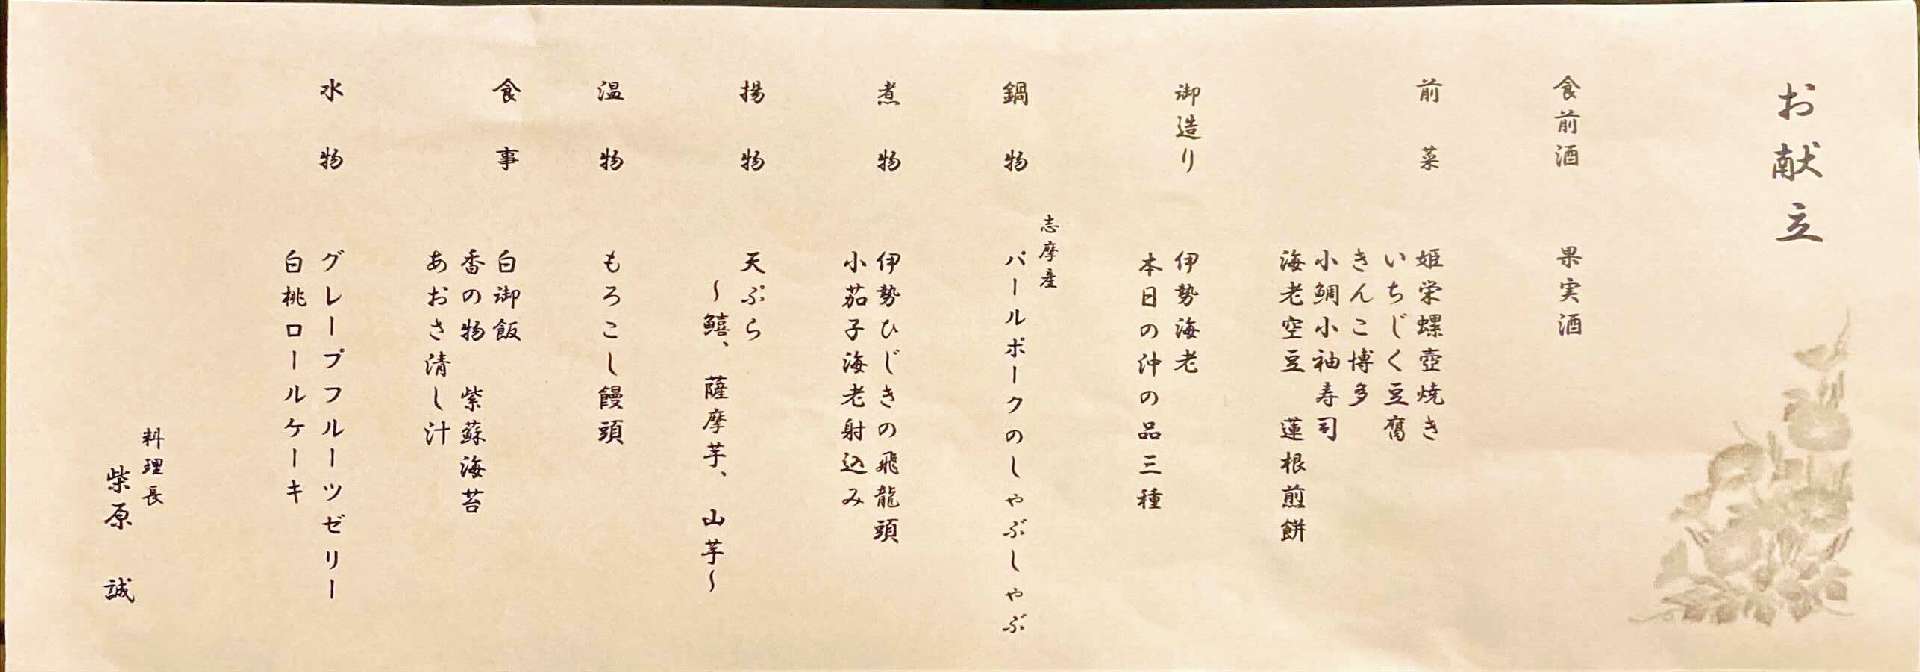 お献立
食前酒 果実酒
前菜 姫栄螺壺焼き
いちじく豆腐
きんこ博多
小鯛小袖寿司
海老空豆 蓮根煎餅
御造り 伊勢海老
本日の沖の品三種
志摩産
鍋物 パールポークのしゃぶしゃぶ
煮物 伊勢ひじきの飛龍頭
小茄子海老射込み
揚物 天ぷら
〜鱚、薩摩芋、山芋〜
温物 もろこし饅頭
食事 白御飯
香の物 紫蘇海苔
あおさ清し汁
水物 グレープフルーツゼリー
白桃ロールケーキ
料理長
柴原 誠